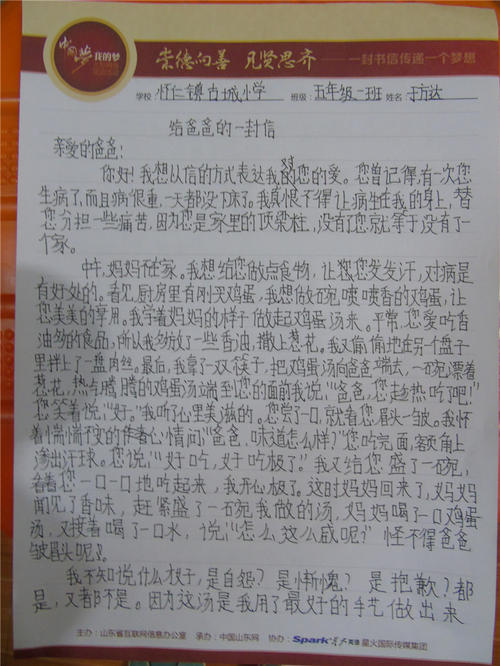 中国梦 我的梦
崇德向善 见贤思齐 一封书信传递一个梦想
学校 怀仁镇古城小学 班级: 五年级一班 姓名 于方达
给爸爸的一封信
亲爱的爸爸:
你好!我想从信的方式表达我对您的爱。您曾记得,有一次您
生病了,而且病很重,一天都没下床了。我真恨不得让病生在我的身上,替
您分担一些痛苦,因为您是家里的顶梁柱,没有了您就等于没有了
个家。
中午,妈妈不在家。我想给您做点食物,让您发发汗,对病是
有好处的。看见厨房里有刚买鸡蛋,我想做碗喷喷香的鸡蛋,让
您美美的享用。我学着妈妈的样子做起鸡蛋汤来。平常,您爱吃香
油的食品,所以我放了一些香油,撒上葱花。我又偷偷地在另个盘子
里拌上了一盘肉丝。最后,我拿了双筷子,把鸡蛋汤向爸爸端去,一碗漂着
葱花,热气腾腾的鸡蛋汤端到您的面前我说,“爸爸,您趁热吃吧!”
您笑着说,“好。”我听了心里美滋的。您尝了一口,就看您眉头一皱。我怀
着惴惴不安的心情问“爸爸,味道怎么样?”您吃完面,额角上
渗出汗珠。您说,“好吃,好吃极了。”我又给您盛了一碗,
看着您一口一口地吃起来,我开心极了。这时妈妈回来了,妈妈
闻见了香味,赶紧盛了一碗我做的汤,妈妈喝了一口鸡蛋
汤,又接着喝了一口水,说,“怎么这么咸呢?”怪不得爸爸
皱眉头呢。
我不知说什么才好,是自怨?是惭愧?是抱歉?都
是,又都不是。因为这汤是我用了最好的手艺做出来
主办:山东省互联网信息办公室 承办:中国山东网 协办:Spark 星火英语 星火国际传媒集团